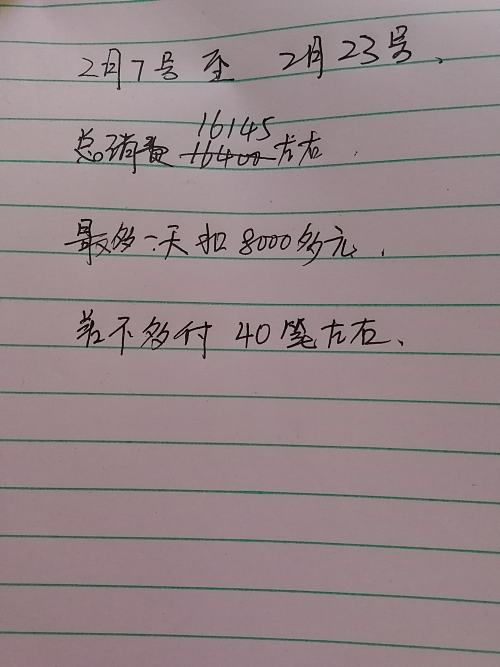 2月7号至 2月23号、
16145
总消费 16400 左右
最多一天扣8000多元.
差不多付 40笔左右、